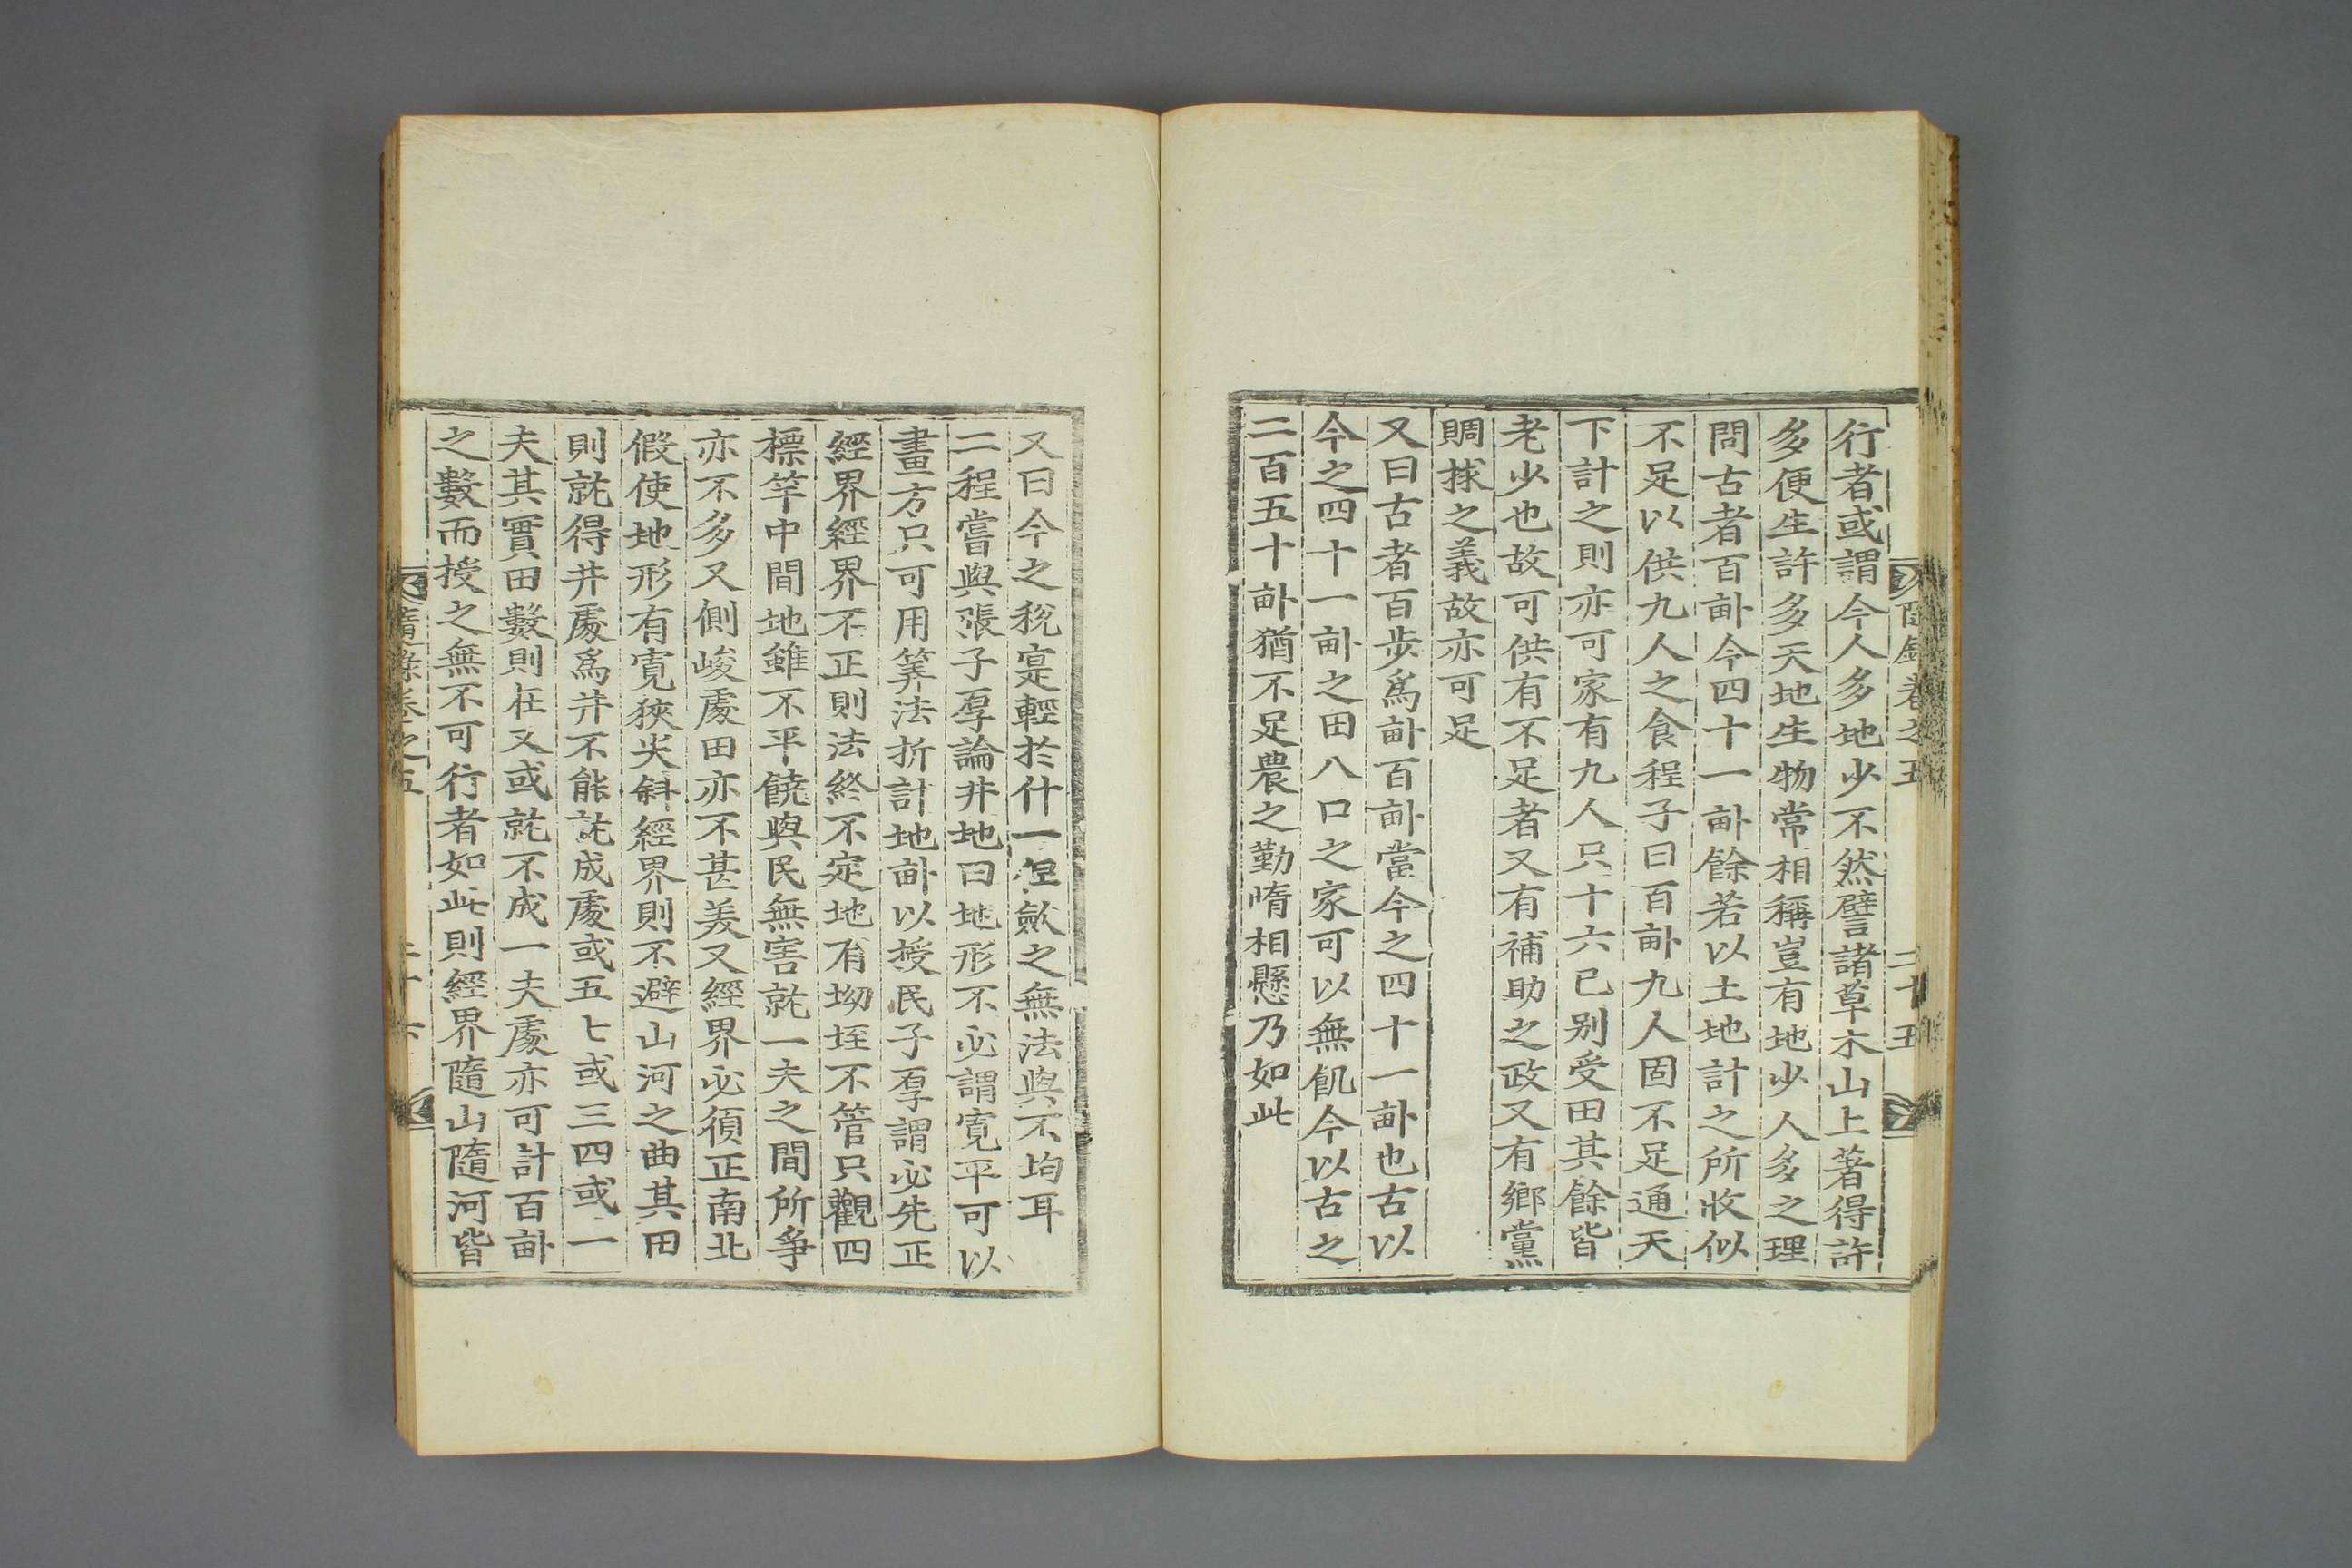 隨録卷之五 二十五
行者或謂今人多地少不然譬諸草木山上著得許
多便生許多天地生物常相稱豈有地少人多之理
問古者百畝今四十一畝餘若以土地計之所收似
不足以供九人之食程子曰百畝九人固不足通天
下計之則亦可家有九人只十六已别受田其餘皆
老少也故可供有不足者又有補助之政又有鄉黨
賙捄之義故亦可足
又曰古者百步爲畝百畝當今之四十一畝也古以
今之四十一畝之田八口之家可以無飢今以古之
二百五十畝猶不足農之勤惰相懸乃如此
又曰今之稅寔輕於什一但斂之無法與不均耳
二程嘗與張子厚論井地曰地形不必謂寛平可以
畫方只可用筭法折計地畝以授民子厚謂必先正
經界經界不正則法終不定地有坳垤不管只觀四
標竿中間地雖不平饒與民無害就一夫之間所爭
亦不多又側峻處田亦不甚美又經界必須正南北
假使地形有寛狹尖斜經界則不避山河之曲其田
則就得井處爲井不能就成處或五七或三四或一
夫其實田數則在又或就不成一夫處亦可計百畝
之數而授之無不可行者如此則經界隨山隨河皆
隨録卷之五 二十六